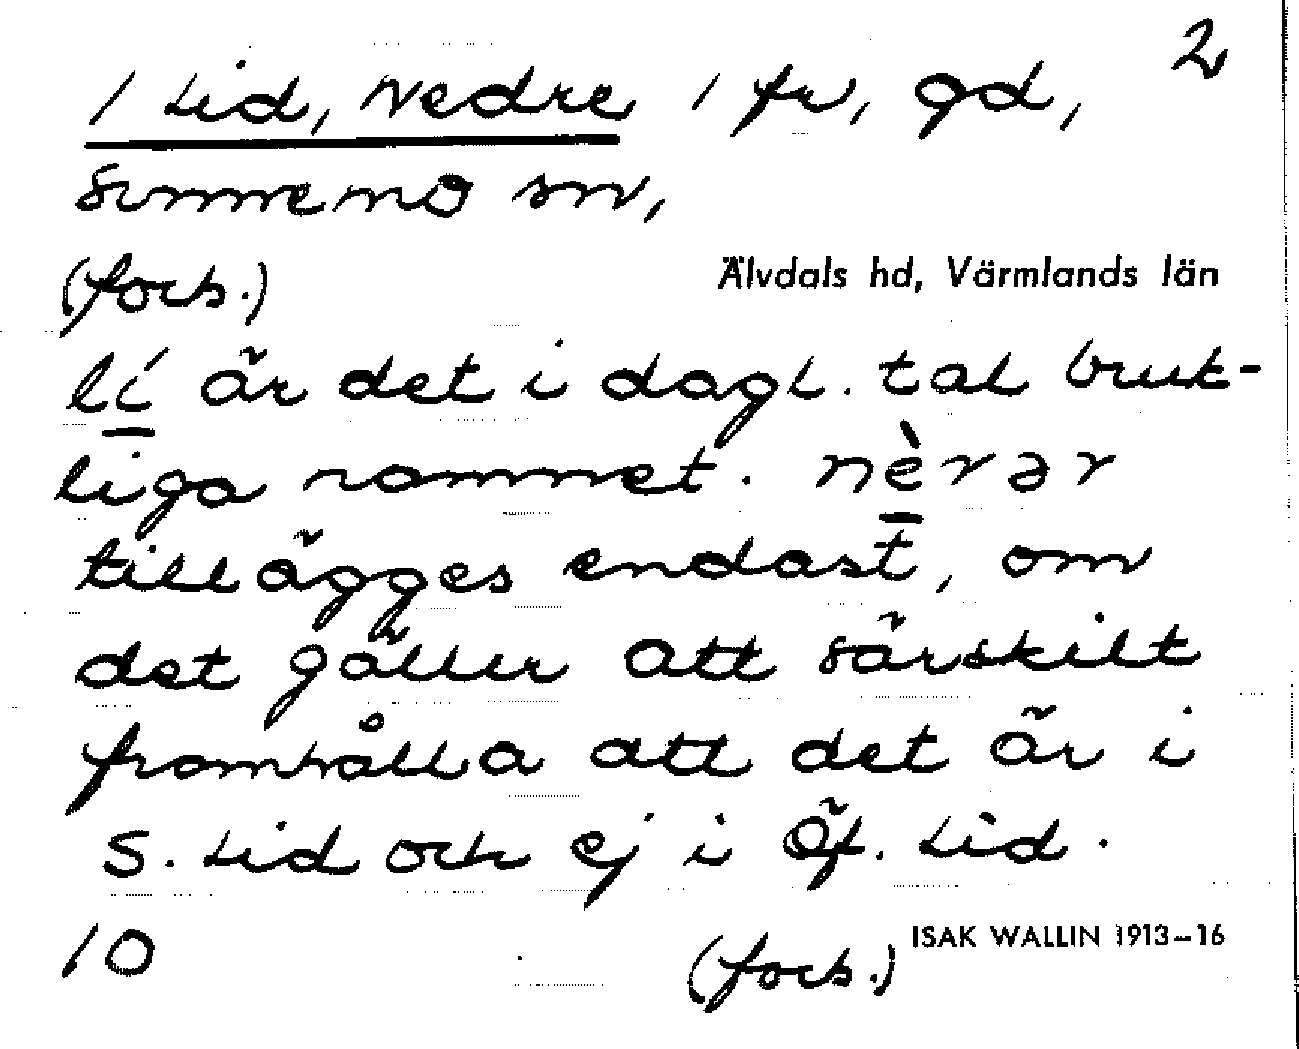 2
1 Lid, Nedre 1 fr, gd,
Sunnemo sn,
(forts.)
Älvdals hd, Värmlands län
lí är det i dagl. tal bruk-
liga namnet. nèrər
tillägges endast, om
det gäller att särskilt
framhålla att det är i
S. Lid och ej i Öf. Lid.
10
(forts.)
ISAK WALLIN 1913–16